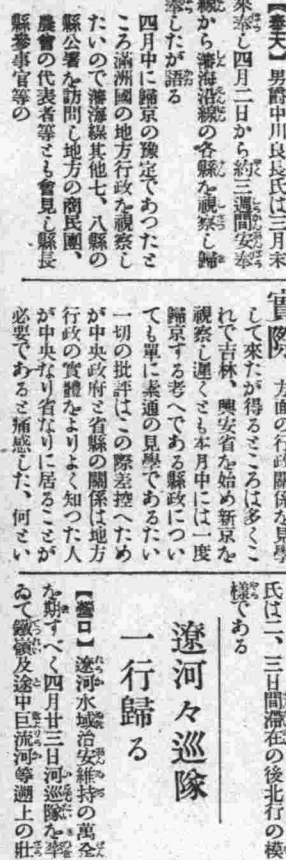 【奉天】男爵中川良長氏は三月末
來奉し四月二日から約三週間安奉
線から瀋海沿線の各縣を視察し歸
奉したが語る
四月中に歸京の豫定であつたと
ころ滿洲國の地方行政を視察し
たいので瀋海線其他七、八縣の
縣公署を訪問し地方の商民團、
農會の代表者等とも會見し縣長
縣參事官等の
實際方面の行政關係な見學
して來たが得るところは多くこ
れで吉林、興安省を始め新京を
視察し遲くとも本月中には一度
歸京する考へである縣政につい
ても單に素通の見學であるたい
一切の批評はこの際差控へため
が中央政府と省縣の關係は地方
行政の實體をよりよく知つた人
が中央なり省なりに居ることが
必要であると痛感した、何とい
氏は二、三日間滯在の後北行の模
樣である
遼河々巡隊
一行歸る
【營口】遼河水域治安維持の萬全
を期すべく四月廿三日河巡隊を率
ゐて鐵嶺及途中巨流河等遡上の壯